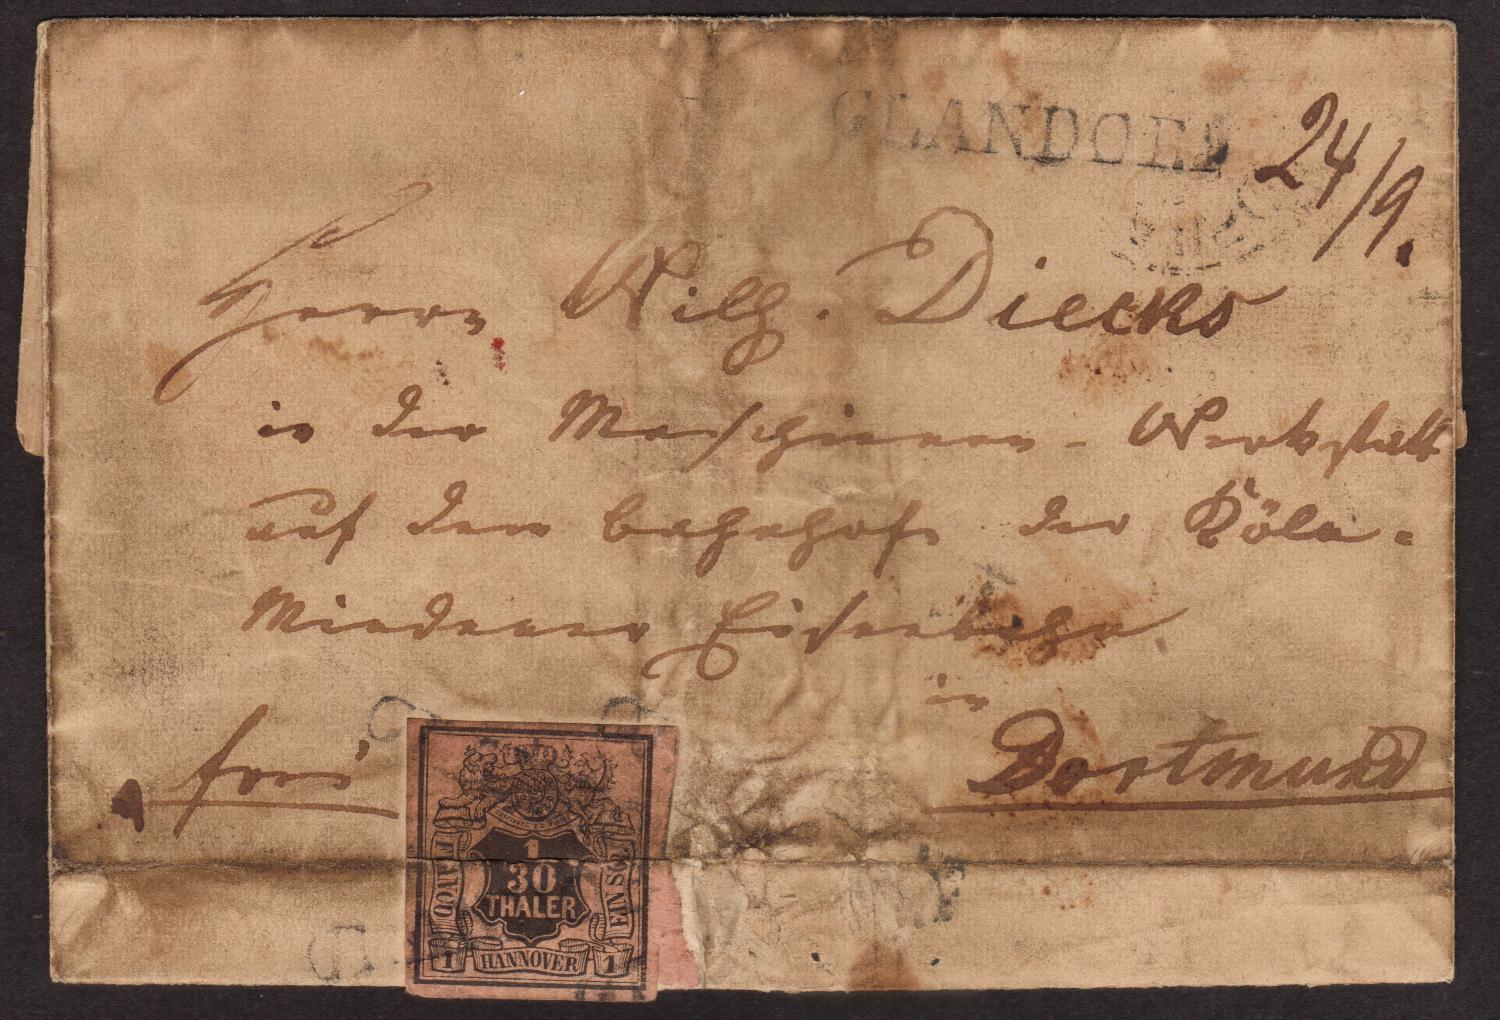 GLANDORF 24/9.
Herrn Wilh. Diecks
in der Maschienen-Werkstatt
auf dem Bahnhofe der Köln-
Mindener Eisenbahn
in
frei Dortmund
1
30
THALER
FRANCO
EIN SGR
1 HANNOVER 1